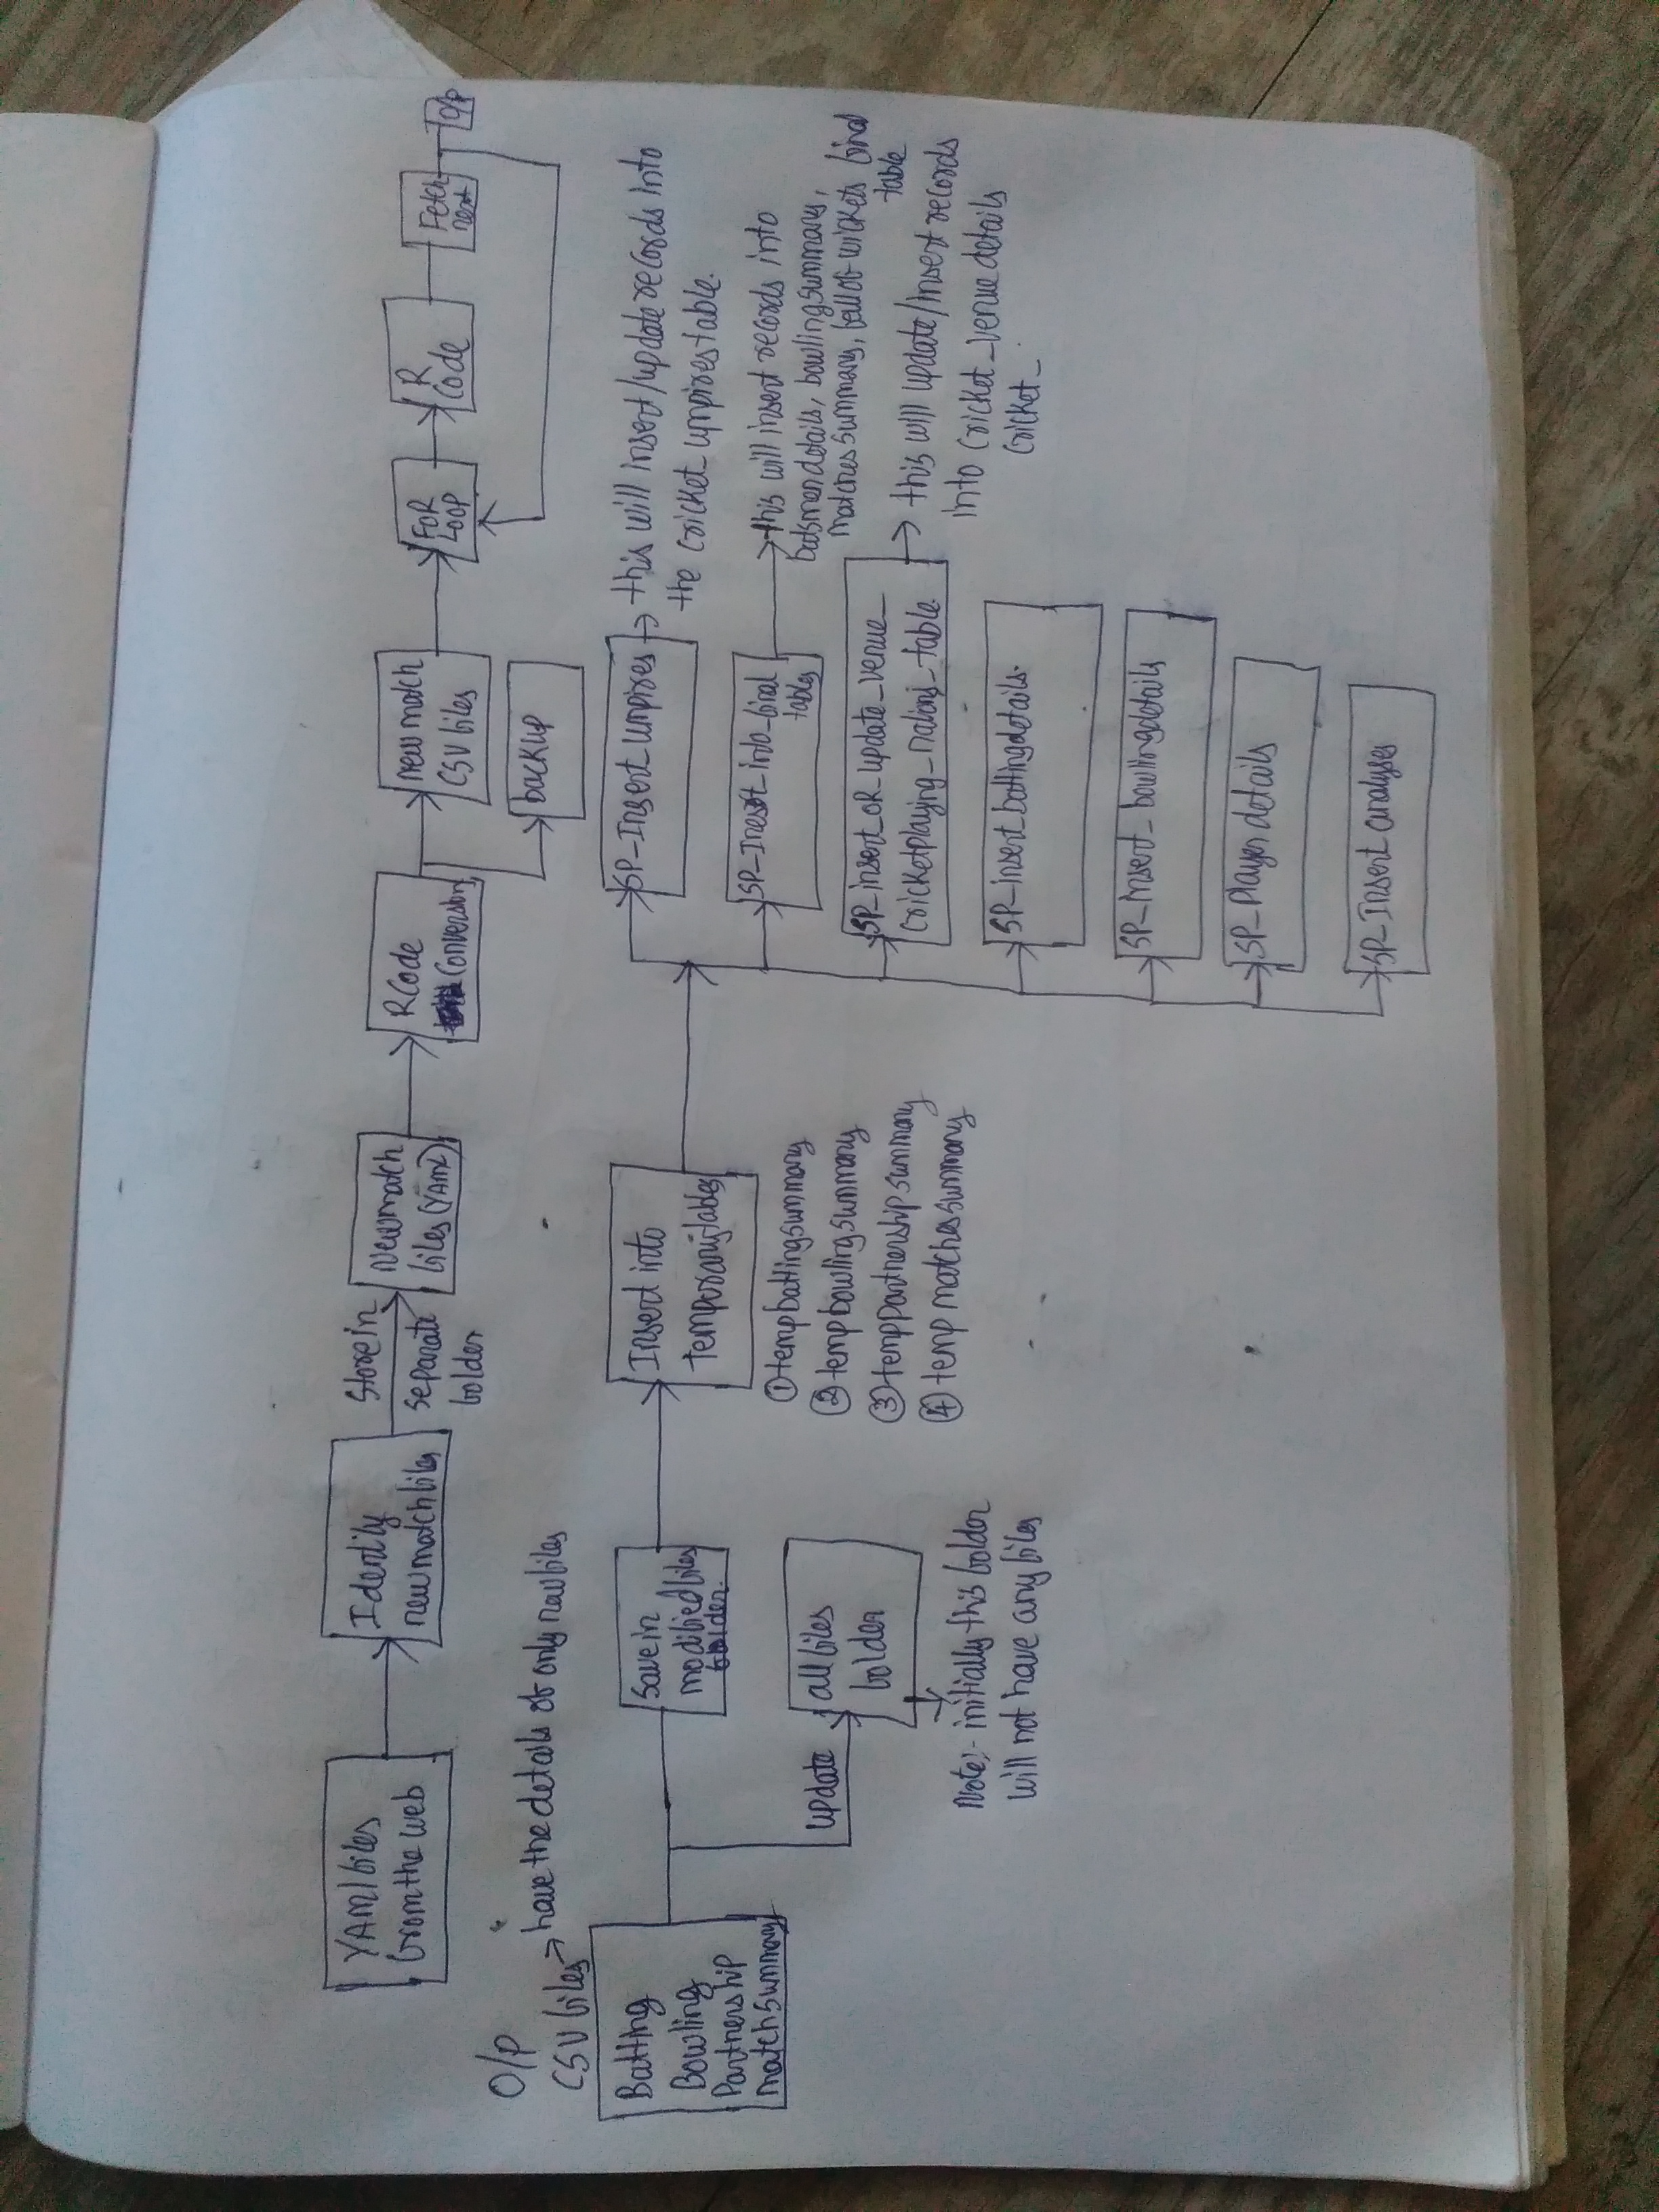 YAMl files
from the web
Identify
new match files
Store in
separate
folder
New match
files (YAML)
R Code
Conversion
new match
CSV files
backup
FOR
LOOP
R
Code
Fetch
next
O/P
O/P
CSV files → have the details of only new files
Batting
Bowling
Partnership
match summary
Save in
modified files
folder.
update
all files
folder
Note:- initially this folder
will not have any files
Insert into
temporary tables
① temp batting summary
② temp bowling summary
③ temp partnership summary
④ temp matches summary
SP_Insert_umpires
→ this will insert/update records into
the cricket_umpires table.
SP_Inesrt_into_final
tables
→ this will insert records into
batsmen details, bowling summary,
matches summary, fall of wickets final
table
SP_insert_OR_update_venue_
cricketplaying_nations_table.
→ this will update/insert records
into cricket_venue details
cricket_
SP_insert_battingdetails.
SP_Insert_bowlingdetails
SP_Player details
SP_Insert_analyses